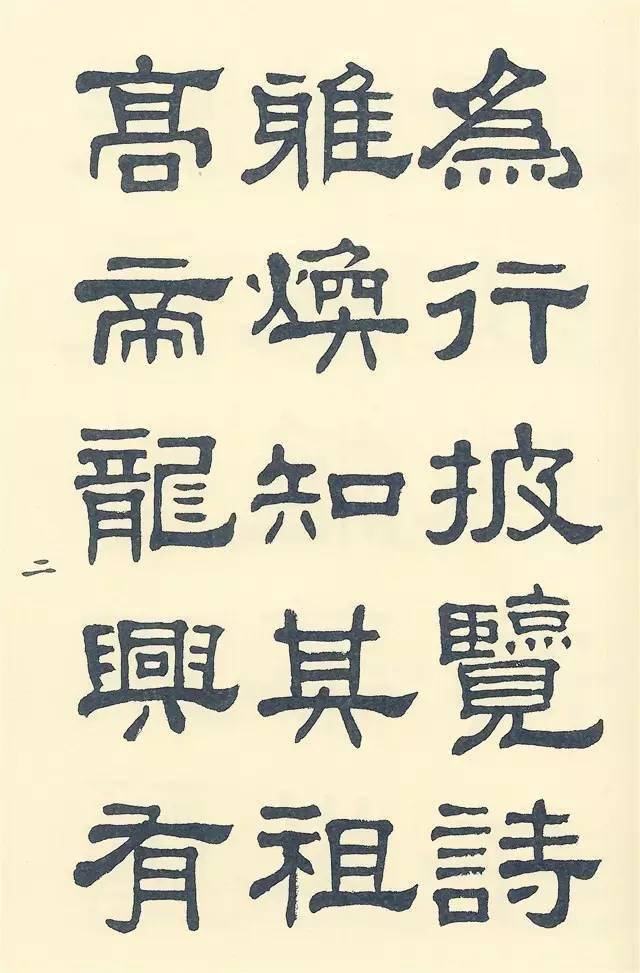 為行披覽詩
雅煥知其祖
高帝龍興有
二